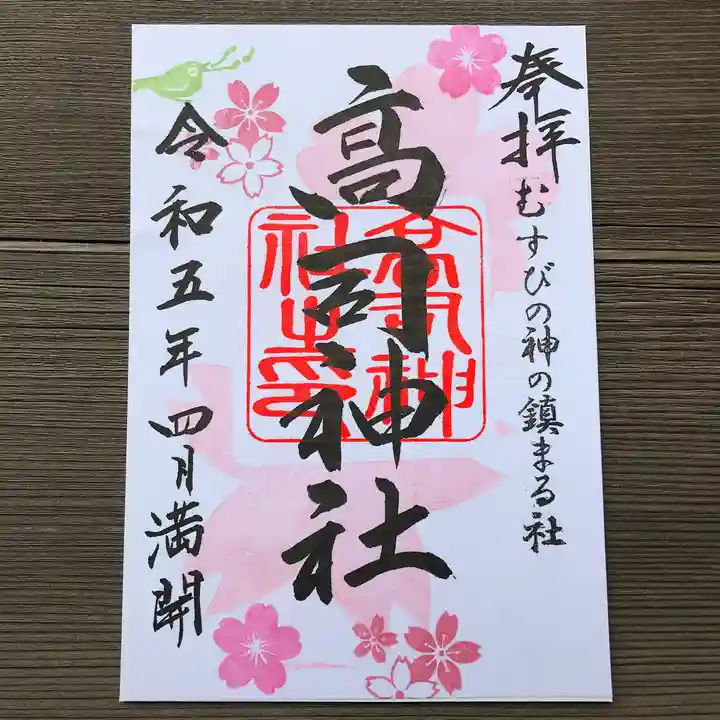 奉拝 むすびの神の鎮まる社
高司神社
令和五年四月満開